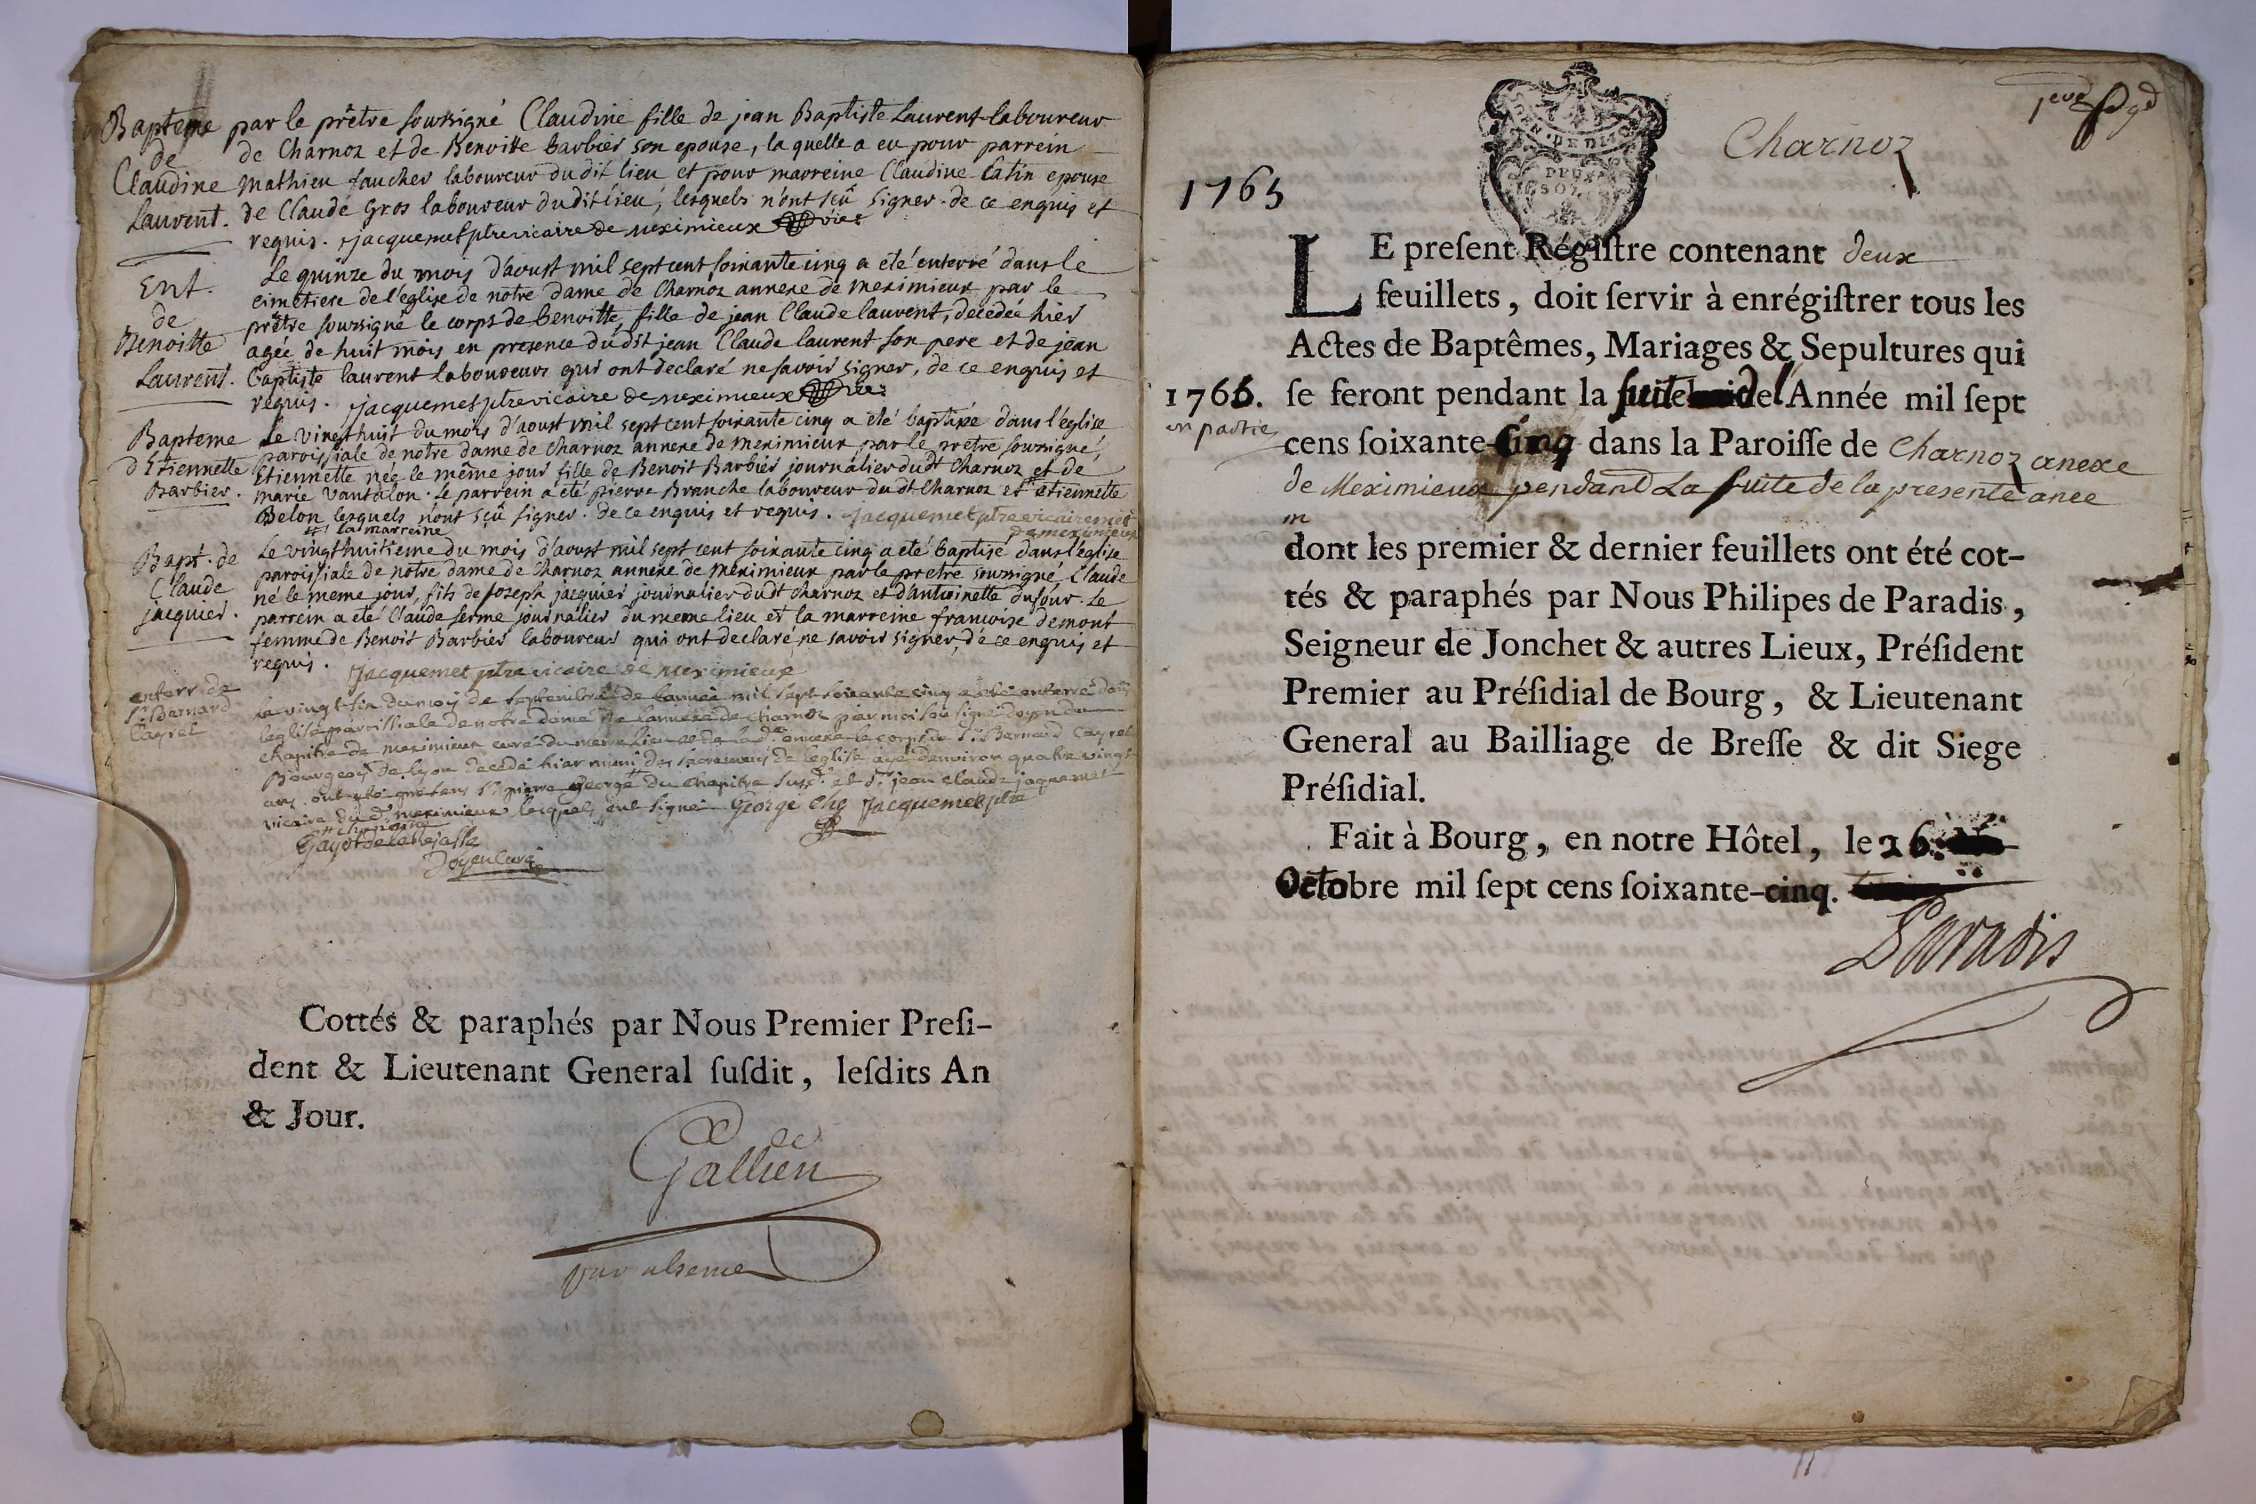 Bapteme
de
Claudine
Laurent.
par le prêtre soussigné Claudine fille de jean Baptiste Laurent laboureur
de Charnoz et de Benoitte barbier son epouse, la quelle a eu pour parrein
mathieu faucher laboureur du dit lieu et pour marreine Claudine Catin epouse
de Claude Gros laboureur dudit lieu, lesquels n'ont sçû signer. de ce enquis et
requis. jacquemet ptre vicaire de meximieux
Ent.
de
Benoitte
Laurent.
Le quinze du mois d'aoust mil sept cent soixante cinq a eté enterré dans le
cimetiere de l'eglise de notre dame de Charnoz annexe de meximieux par le
prêtre soussigné le corps de benoitte, fille de jean Claude laurent, decedée hier
agée de huit mois en presence du dit jean Claude laurent son pere et de jean
baptiste laurent laboureurs qui ont declaré ne savoir signer, de ce enquis et
requis. jacquemet ptre vicaire de meximieux
Bapteme
d'Etiennette
Barbier.
Le vingt huit du mois d'aoust mil sept cent soixante cinq a eté baptisée dans l'église
paroissiale de notre dame de Charnoz annexe de meximieux par le prêtre soussigné,
Etiennette née le même jour fille de Benoit Barbier journalier du dt Charnoz et de
marie Vantalon. le parrein a eté pierre Branche laboureur du dt Charnoz et etiennette
Belon lesquels n'ont sçû signer. de ce enquis et requis. jacquemet ptre vicaire
et la marreine
de meximieux
Bapt. de
Claude
jacquier.
Le vingthuitieme du mois d'aoust mil sept cent soixante cinq a eté baptisé dans l'église
paroissiale de notre dame de Charnoz annexe de meximieux par le pretre soussigné, Claude
né le meme jour, fils de joseph jacquier journalier du dt Charnoz et d'antoinette dufour. Le
parrein a eté Claude ferme journalier du meme lieu et la marreine francoise demont
femme de Benoit Barbier laboureur qui ont declaré ne savoir signer, de ce enquis et
requis.
Jacquemet ptre vicaire de meximieux
enterr de
Sr Barnard
Cayrel
Le vingt six du moy de septembre de lannée mil sept soixante cinq a eté enterré dans
leglise paroissialle de notre dame de lannexe de charnoz par moi sousigné doyen du
chapitre de meximieux curé du meme lieu et de la de annexe le corps de Sr Bernard Cayrel
Bourgeois de lyon decedé hiar muni des sacremens de leglise agé denviron quatre vingt
ans. ont eté presens Sr pierre George du chapitre susd. et Sr jean claude jaquemet
vicaire du d. meximieux lesquels ont signé George che Jacquemet ptre
Doyen Curé
Cottés & paraphés par Nous Premier Presi-
dent & Lieutenant General susdit, lesdits An
& Jour.
Gallien
Charnoz
1765
LE present Régistre contenant deux
feuillets, doit servir à enrégistrer tous les
Actes de Baptêmes, Mariages & Sepultures qui
1766.
en partie
se feront pendant la suite de l'Année mil sept
cens soixante-cinq dans la Paroisse de Charnoz anexe
de Meximieux pendant La suite de la presente anee
dont les premier & dernier feuillets ont été cot-
tés & paraphés par Nous Philipes de Paradis,
Seigneur de Jonchet & autres Lieux, Président
Premier au Présidial de Bourg, & Lieutenant
General au Bailliage de Bresse & dit Siege
Présidial.
Fait à Bourg, en notre Hôtel, le 26.
Octobre mil sept cens soixante-cinq.
Paradis